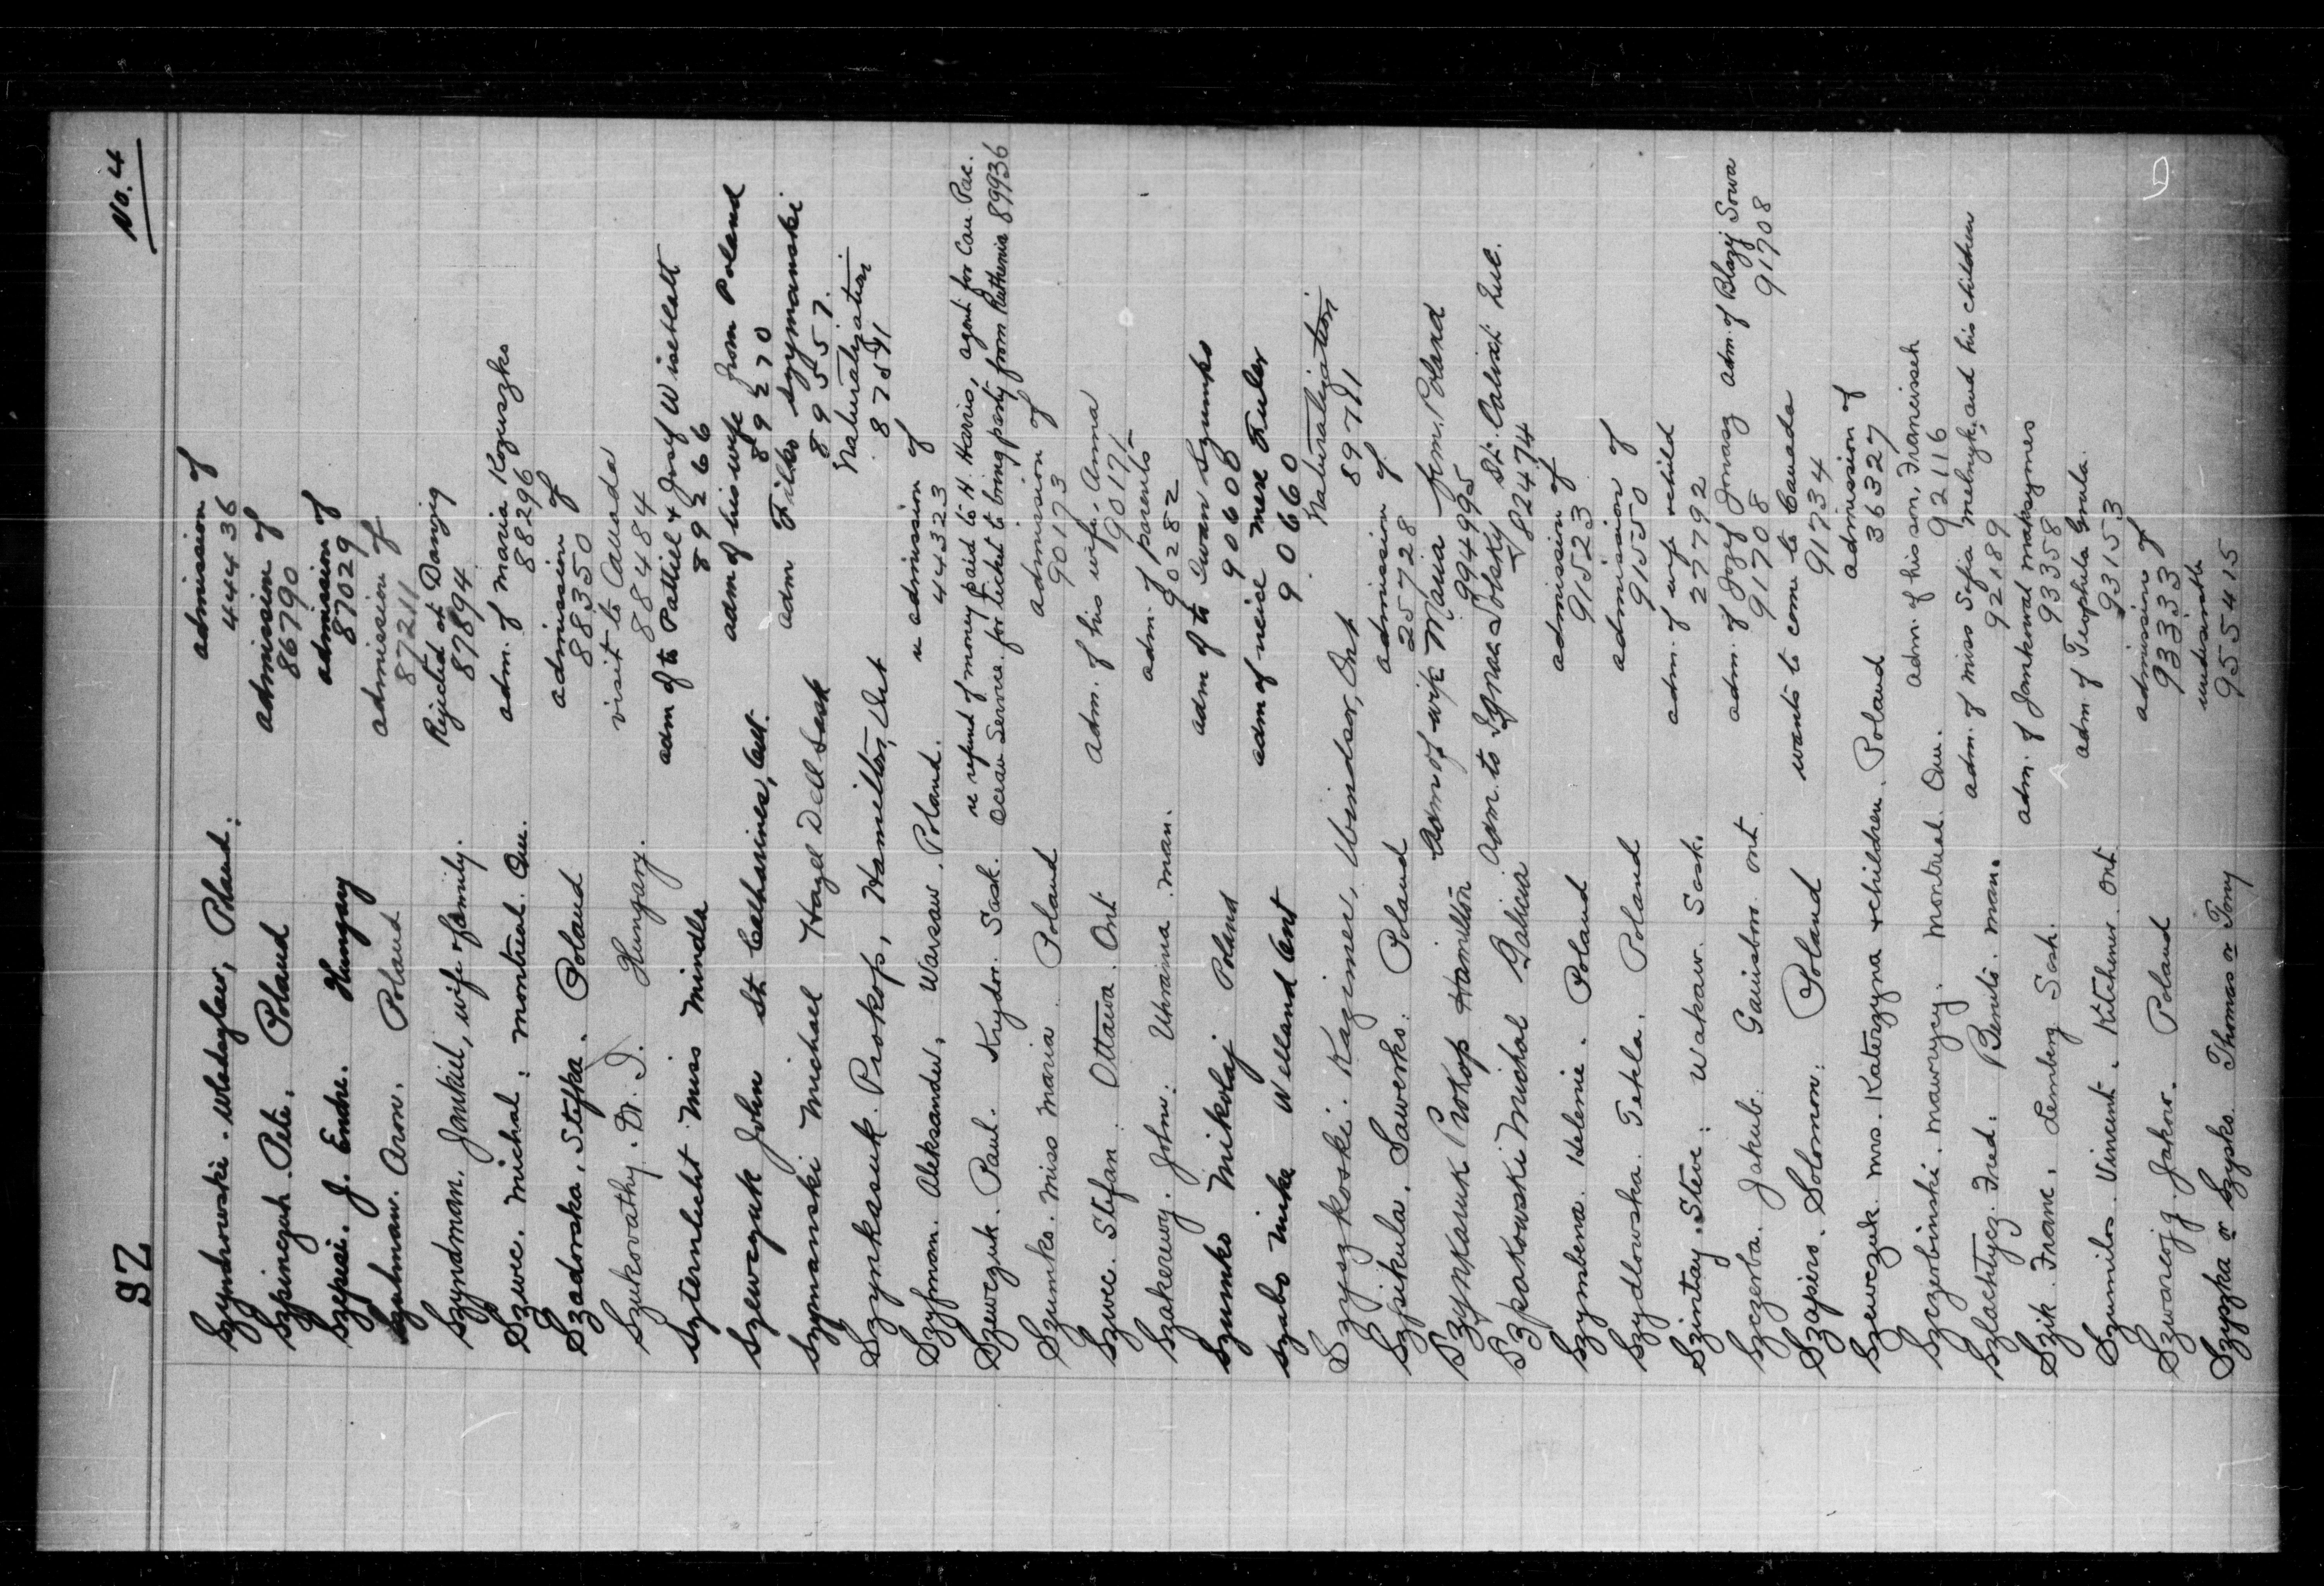 SZ
No. 4
Szyndrowski. Wladyslaw, Poland. admission of
44436
Szpineguk. Pete. Poland admission of
86790
Szepesi. J. Endre. Hungary admission of
87029
Szulman. Aron. Poland admission of
87211
Szyndman. Jankiel, wife & family. Rejected at Danzig
87894
Szwec. Michal. Montreal. Que. adm. of Maria Kozuszko
88296
Szadorska. Stefka. Poland admission of
88350
Szukovathy. Dr. I. Hungary. visit to Canada
88484
Szternlicht Miss Mindla adm of to Pattiel & Josef Wisehlatt
89266
Szewczuk John St Catharines, Ont. adm of his wife from Poland
89270
Szymanski Michael Hazel Dell Sask adm Filko Szymanski
89557.
Szynkasuk. Prokop, Hamilton, Ont Naturalization
87591
Szyfman. Aleksander, Warsaw. Poland. re admission of
44323
Szewczuk. Paul. Krydor. Sask. re refund of money paid to H Harris, agent for Can. Pac.
Ocean Service. for ticket to bring party from Ruthenia 89936
Szumko. Miss Maria. Poland admission of
90173
Szwec. Stefan. Ottawa. Ont adm. of his wife, Anna
90171
Szakerewy. John. Ukraina. Man. adm. of parents
90282
Szumko Mikolaj Poland adm of to Iwan Szumko
90608
Szabo Mike Welland Ont adm of neise Mere Fuler
90660
Szyszkoski. Kazimer, Windsor, Ont Naturalization
89791
Szpikula. Sawerko. Poland admission of
257728
Szynkaruk Prokop Hamilton Adm of wife Maria from Poland
994995
Szpakowski Michal Galicia Adm. to Ignac Sobsky St. Calixt Que.
582474
Szymbena. Helenie. Poland admission of
91523
Szydlowska. Tekla. Poland admission of
91550
Szintay. Steve. Wakaw. Sask. adm. of wife & child
277792
Szczerba. Jakub. Gainsboro. Ont. adm. of Jozef Jonasz adm. of Blazej Sowa
91708 91708
Szapiro. Solomon. Poland wants to come to Canada
91734
Szewczuk. Mrs. Katerzyna & children. Poland admission of
36327
Szczerbinski. Mawrycy. Montreal. Que. adm. of his son, Franciszek
92116
Szlachtycz. Fred. Benito. Man. adm. of Miss Sofia Melnyk, and his children
92189
Szik. Frank. Lemberg Sask. adm. of Jamkowal Maksymes
93358
Szumilo. Vincent. Kitchener. Ont adm. of Teophila Grula.
93153
Szwarcojg. Jakow. Poland admission of
93333
Szyszka or Szysko. Thomas or Tony undesirable
955415